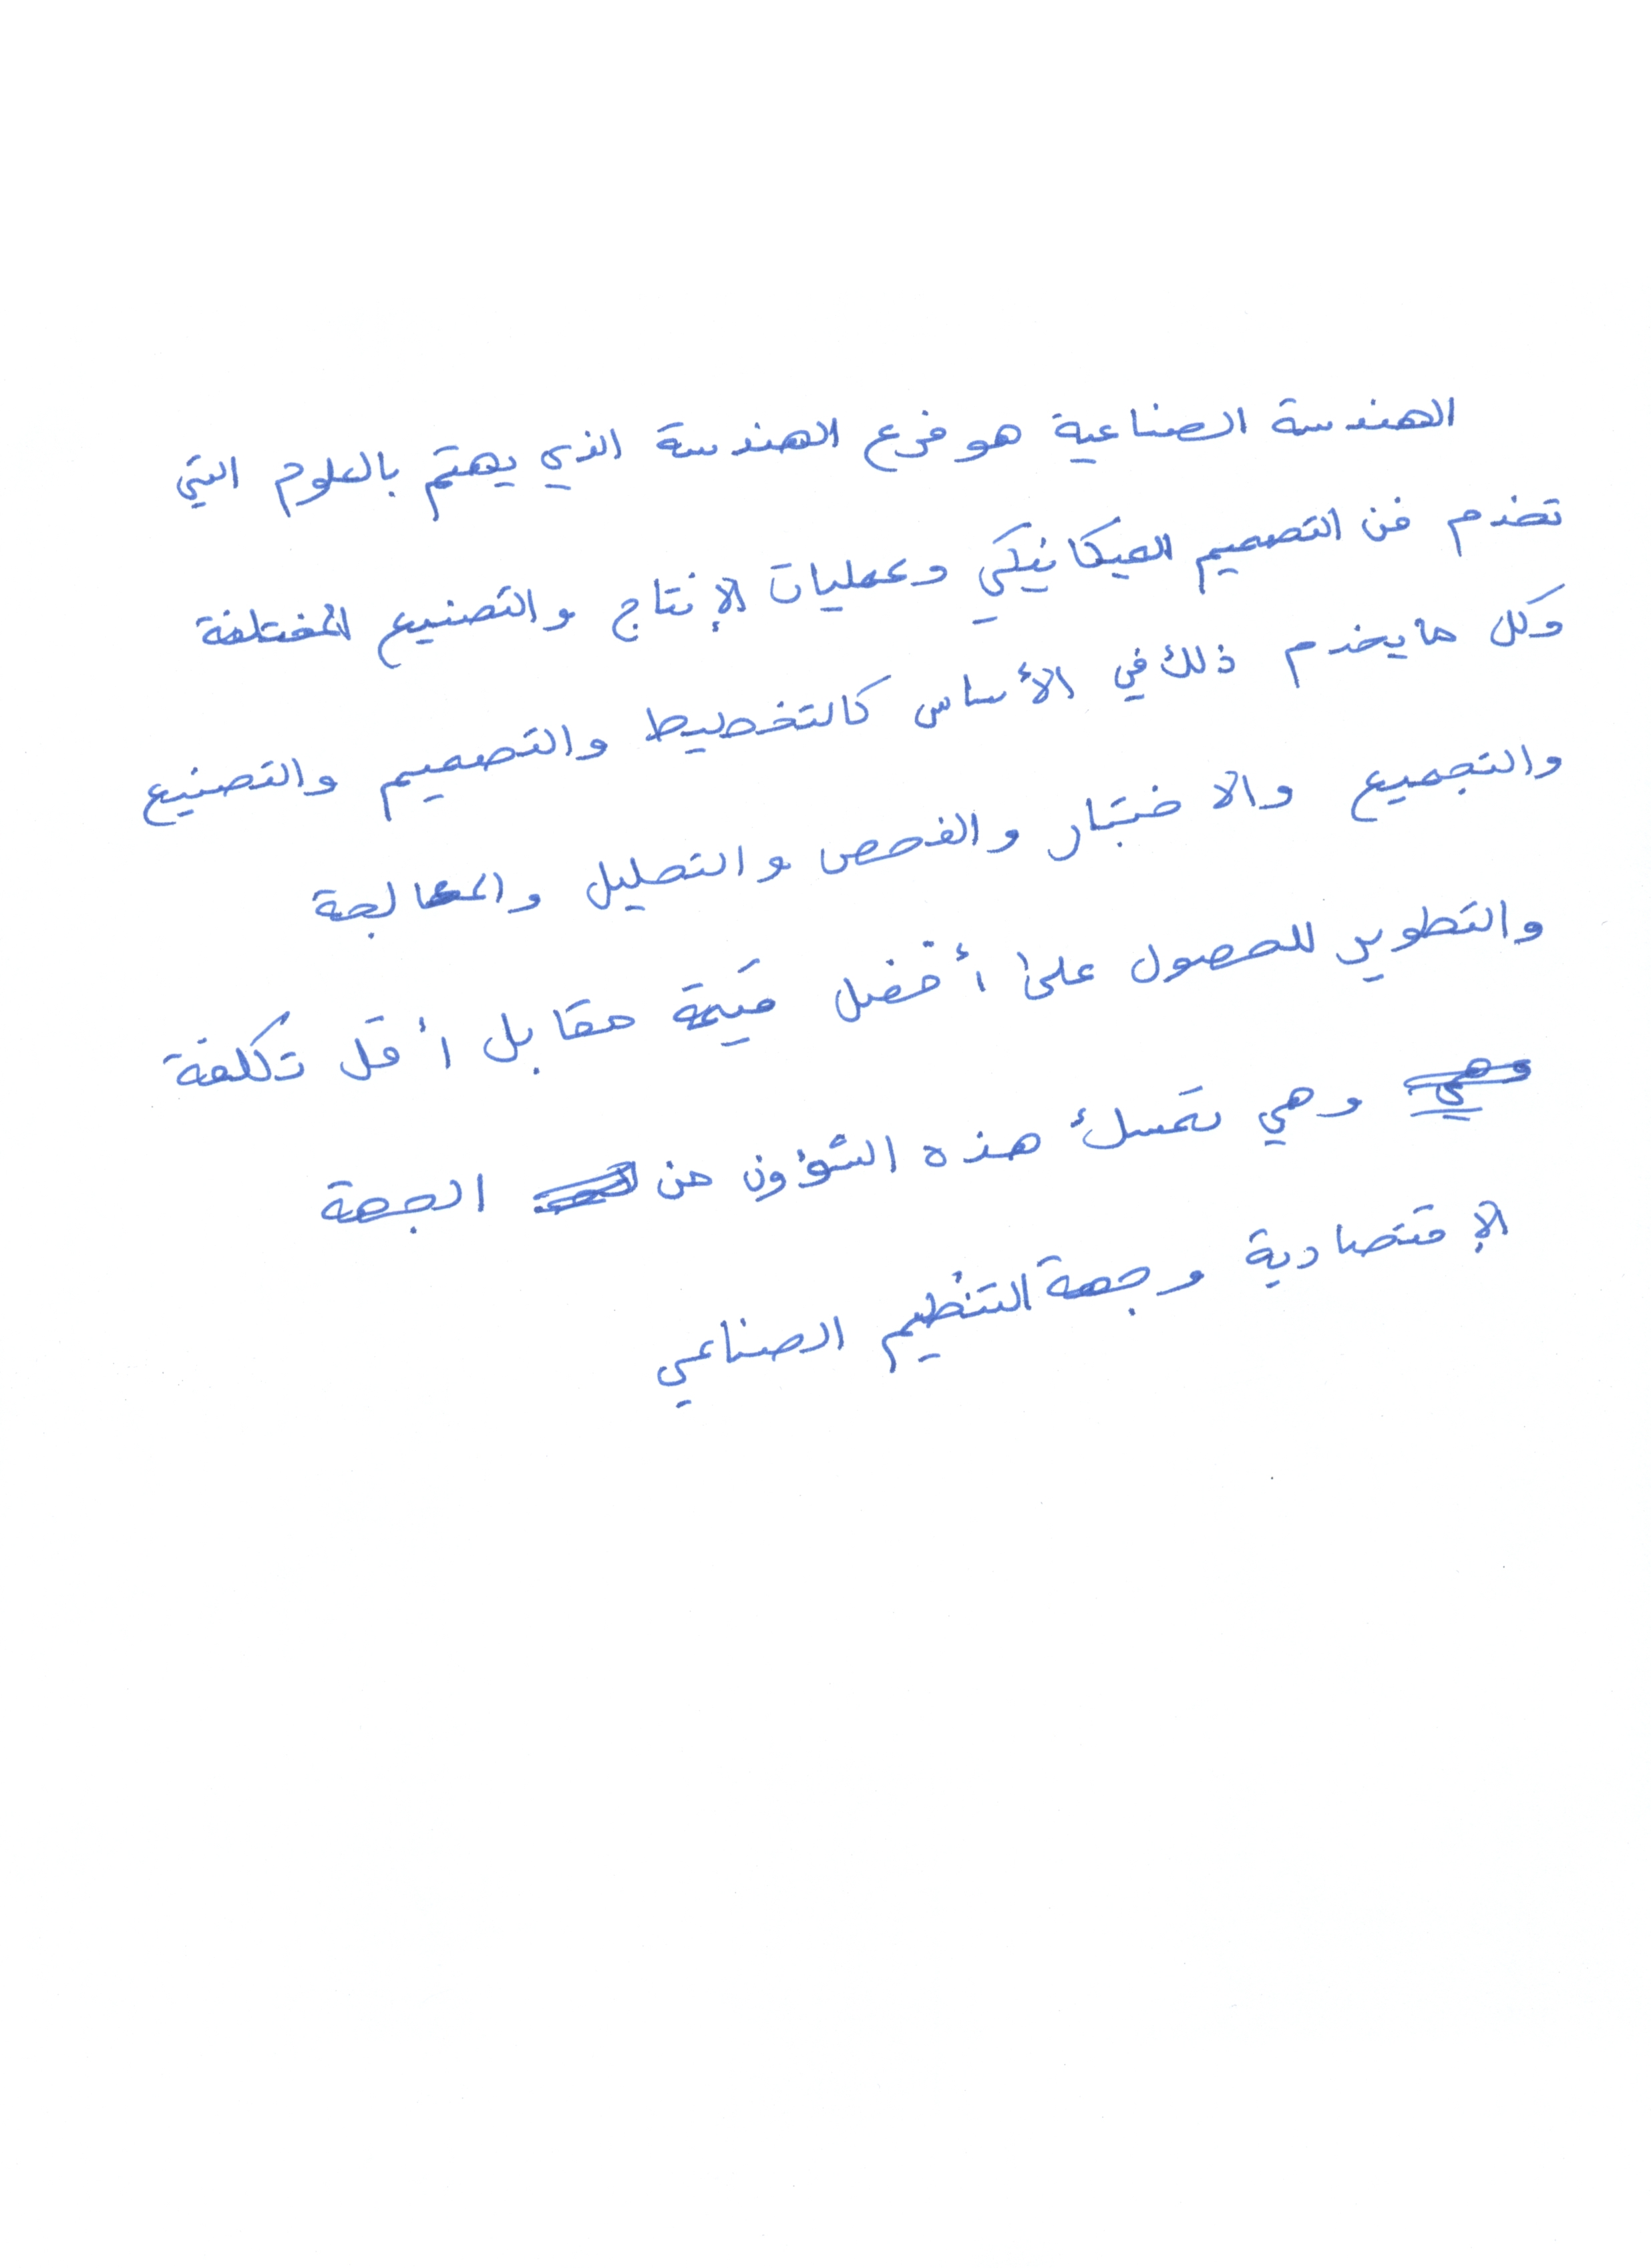 الهندسة الصناعية هو فرع الهندسة الذي يهتم بالعلوم التي
تخدم فن التصميم الميكانيكي وعمليات الإنتاج والتصنيع المختلفة
وكل ما يخدم ذلك في الأساس كالتخطيط والتصميم والتصنيع
والتجميع والاختبار والفحص والتحليل والمعالجة
والتطوير للحصول على أفضل قيمة مقابل أقل تكلفة
وهي وهي تمسك هذه الشؤون من الجهة
الإقتصادية وجهة التنظيم الصناعي